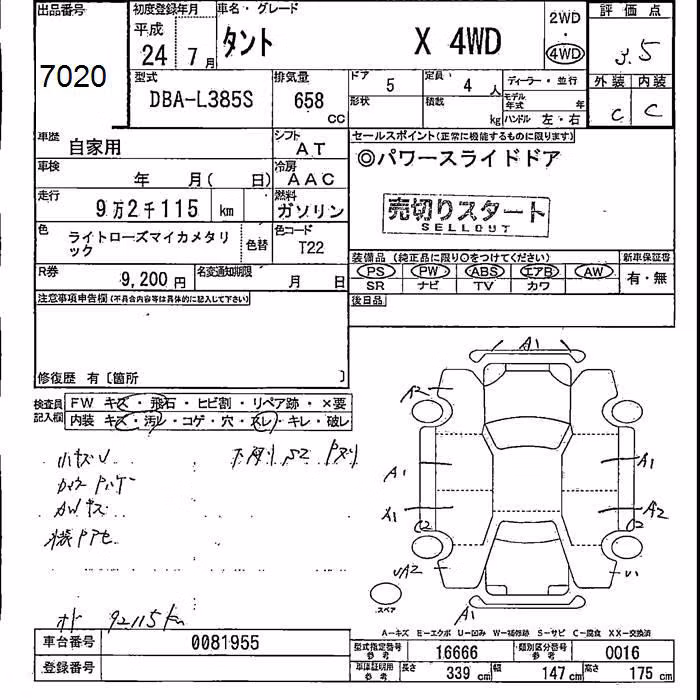 出品番号
7020
初度登録年月
平成
24 7月
車名・グレード
タント X 4WD
2WD
・
4WD
評価点
3.5
外装 内装
C C
型式
DBA-L385S
排気量
658
CC
ドア 5
定員 4人
形状
積載 kg
ディーラー・並行
モデル年式 年
ハンドル 左・右
車歴 自家用
シフト AT
車検 年 月( 日)
冷房 AAC
走行 9万2千115 km
燃料 ガソリン
色 ライトローズマイカメタリック
色替
色コード T22
R券 9,200円
名変通知期限 月 日
セールスポイント(正常に機能するものに限ります)
◎パワースライドドア
売切りスタート
SELLOUT
装備品 (純正品に限り○をつけてください)
新車保証書
PS PW ABS エアB AW
有・無
SR ナビ TV カワ
後日品
注意事項申告欄(不具合内容等は具体的に記入して下さい)
修復歴 有〔箇所 〕
検査員記入欄
FW キズ・飛石・ヒビ割・リペア跡・×要
内装 キズ・汚レ・コゲ・穴・スレ・キレ・破レ
小キズU
AWキズ
A1
A2
A1
A1
A1
A2
UA2
A1
スペア
92115km
A-キズ E-エクボ U-凹み W-補修跡 S-サビ C-腐食 XX-交換済
車台番号 0081955
登録番号
型式指定番号 参考 16666
類別区分番号 参考 0016
車検証明用 参考 長さ 339cm 幅 147cm 高さ 175cm